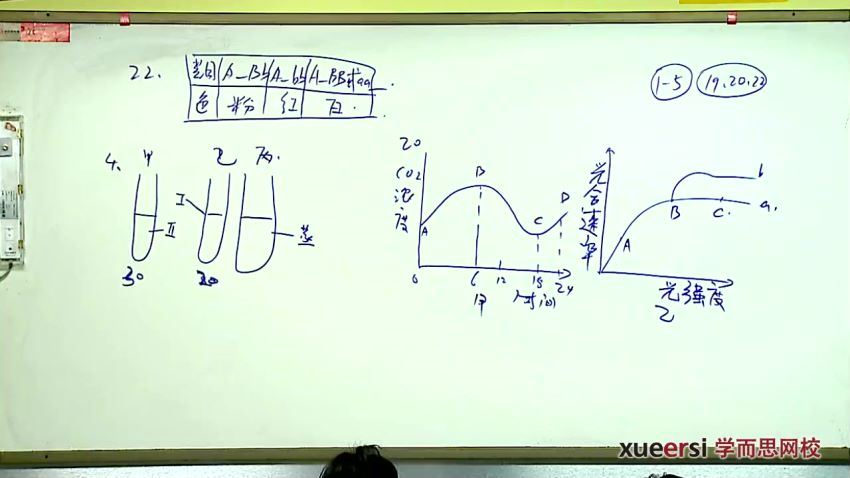 22.
基因 A_Bb A_bb A_BB或aa
色 粉 红 白
1-5 19.20.22
4. 甲 乙 丙.
I
II
蒸
30 20
20
CO2浓度
A B C D
0 6 12 18 24
时间
甲
光合速率
A B C. a. b
光强度
乙
xueersi 学而思网校